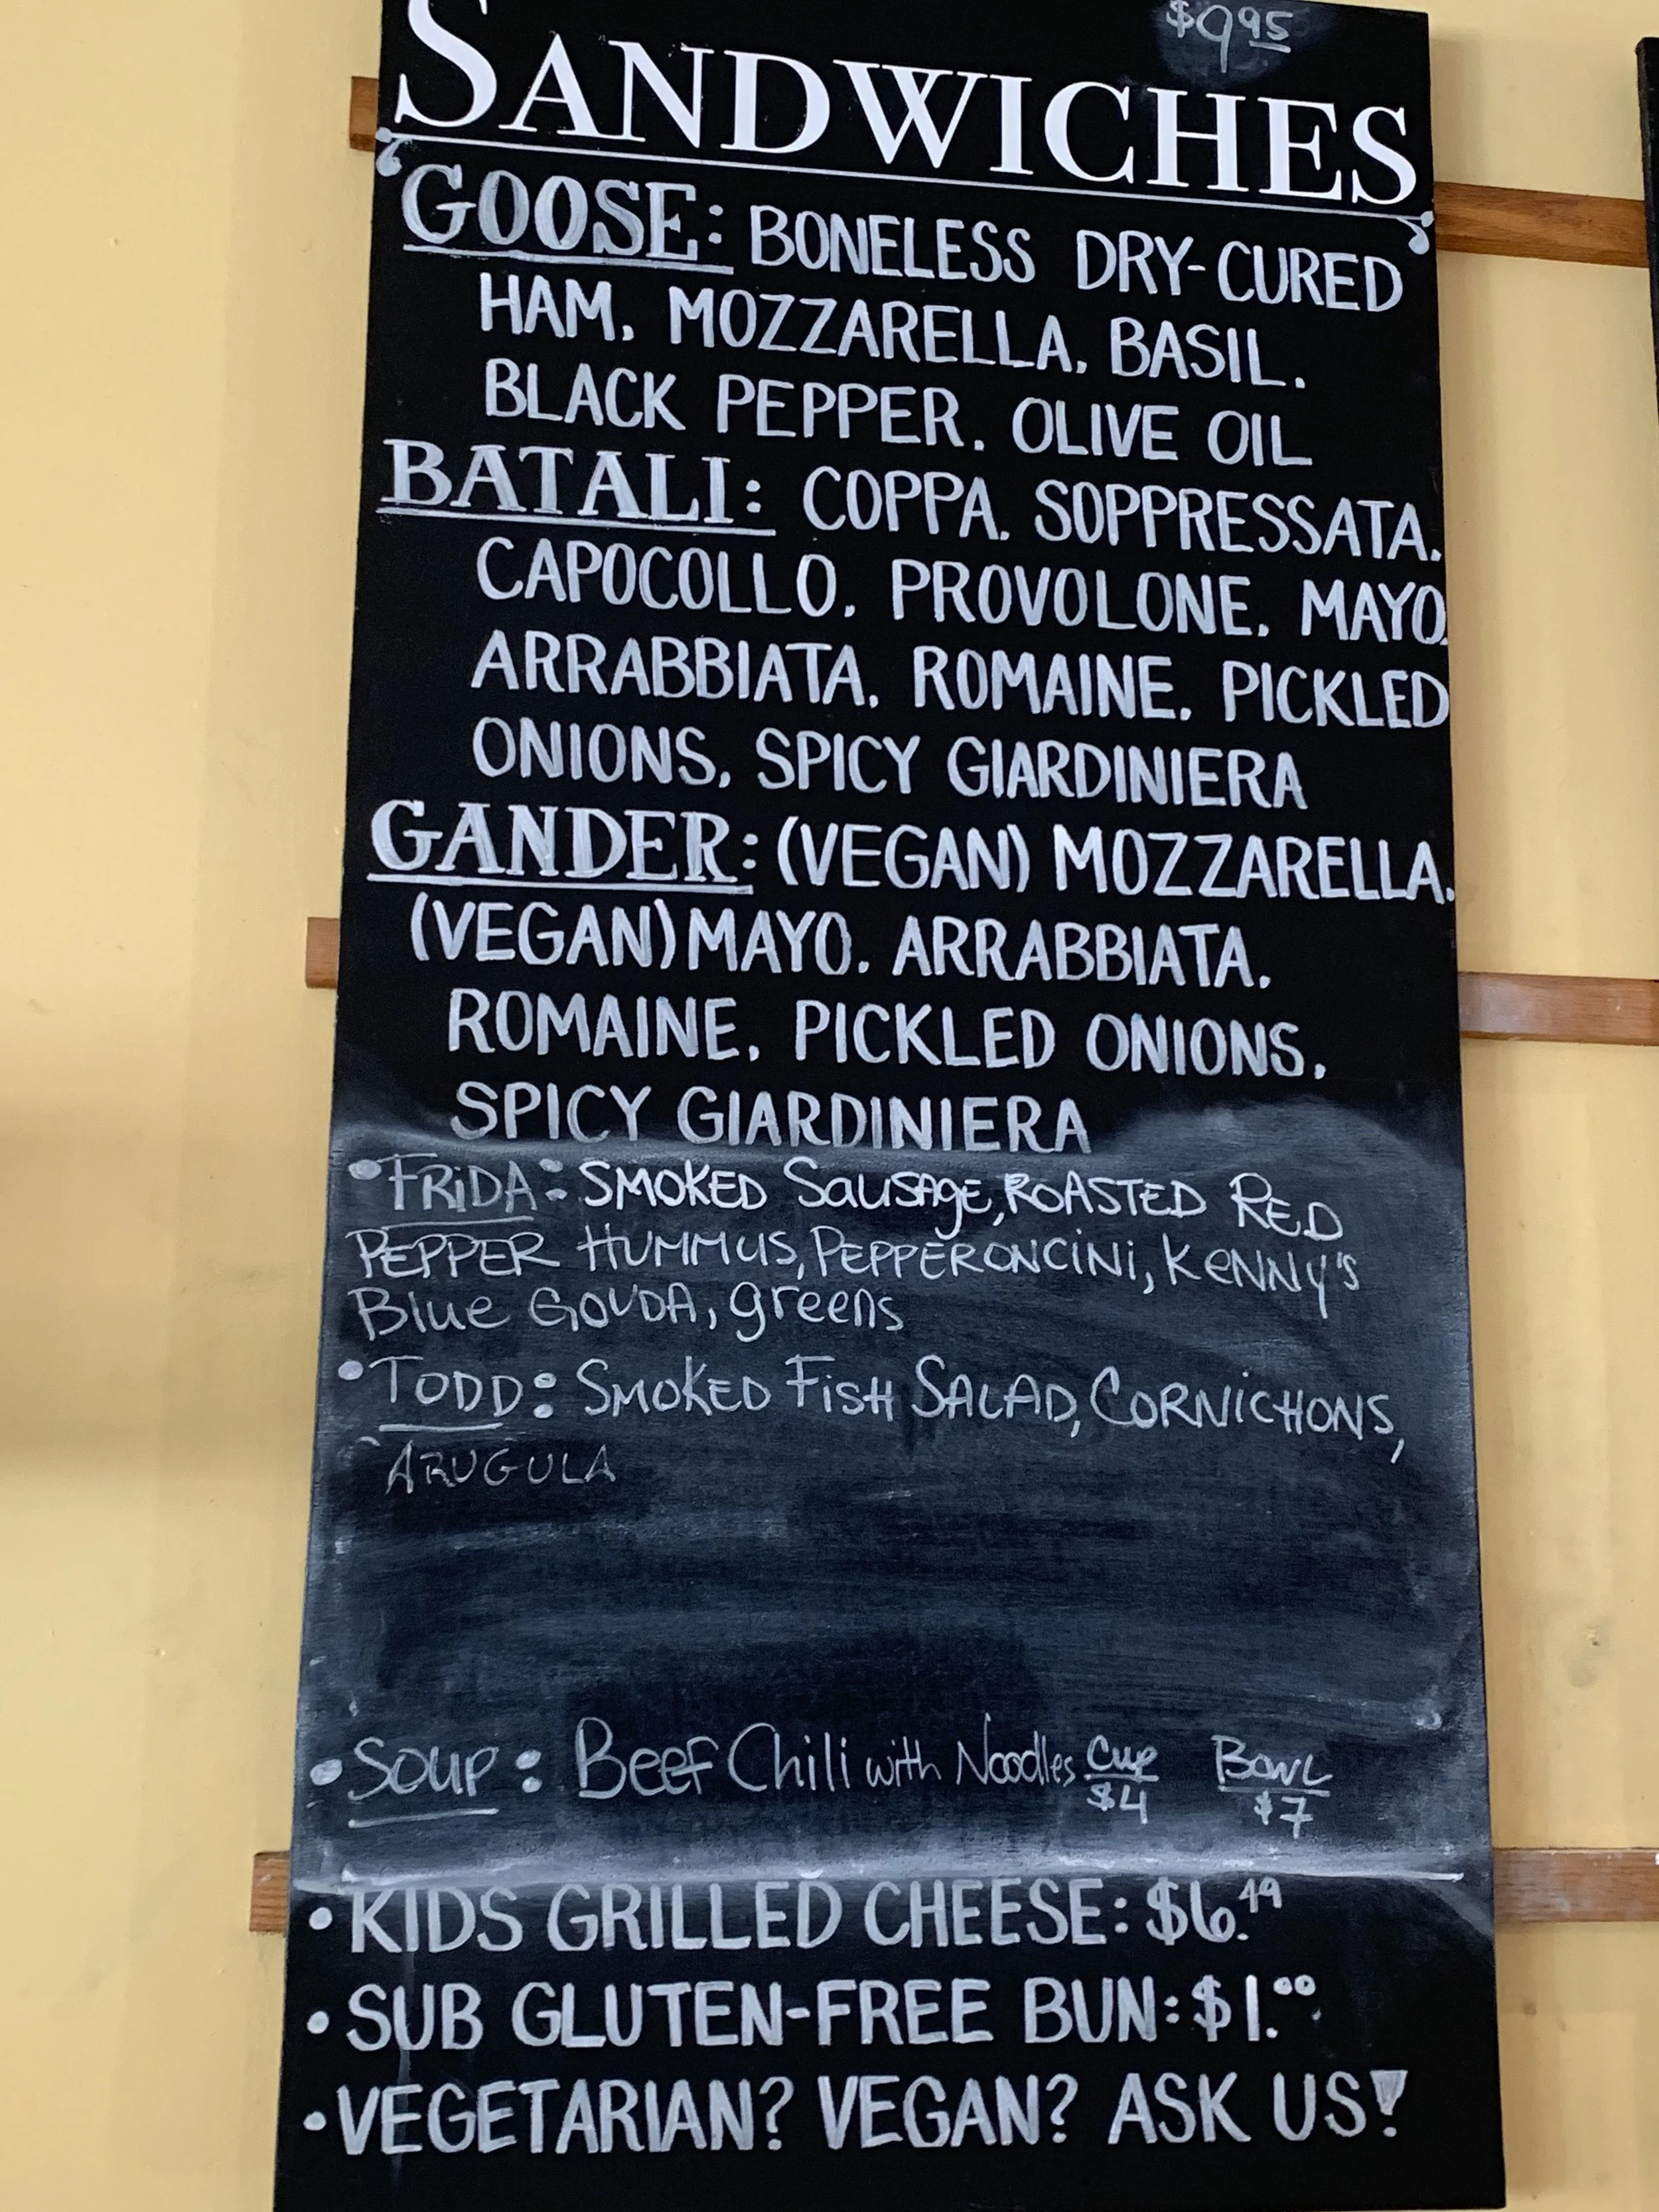 $9.95
SANDWICHES
GOOSE: BONELESS DRY-CURED
HAM, MOZZARELLA, BASIL,
BLACK PEPPER, OLIVE OIL
BATALI: COPPA, SOPPRESSATA,
CAPOCOLLO, PROVOLONE, MAYO,
ARRABBIATA, ROMAINE, PICKLED
ONIONS, SPICY GIARDINIERA
GANDER: (VEGAN) MOZZARELLA,
(VEGAN) MAYO, ARRABBIATA,
ROMAINE, PICKLED ONIONS,
SPICY GIARDINIERA
• FRIDA: SMOKED SAUSAGE, ROASTED RED
PEPPER HUMMUS, PEPPERONCINI, KENNY'S
Blue GOUDA, greens
• TODD: SMOKED FISH SALAD, CORNICHONS,
ARUGULA
• SOUP: Beef Chili with Noodles Cup $4 Bowl $7
• KIDS GRILLED CHEESE: $6.49
• SUB GLUTEN-FREE BUN: $1.00
• VEGETARIAN? VEGAN? ASK US!